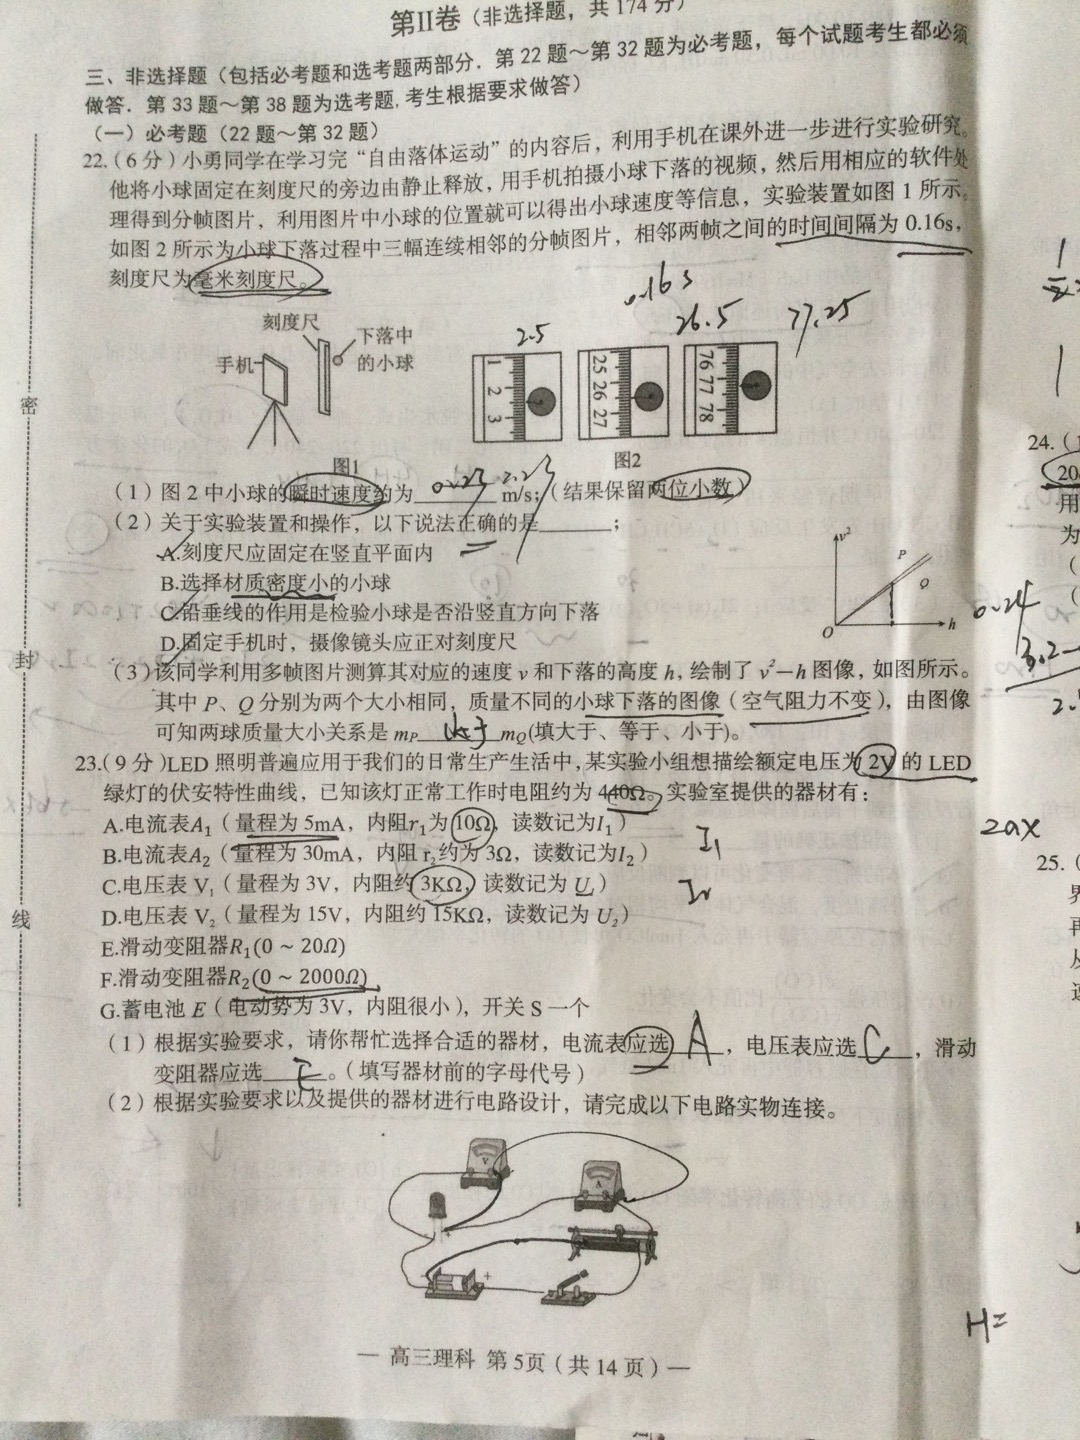 第II卷（非选择题，共 174 分）
三、非选择题（包括必考题和选考题两部分．第 22 题～第 32 题为必考题，每个试题考生都必须
做答．第 33 题～第 38 题为选考题,考生根据要求做答）
（一）必考题（22 题～第 32 题）
22.（6 分）小勇同学在学习完“自由落体运动”的内容后，利用手机在课外进一步进行实验研究。
他将小球固定在刻度尺的旁边由静止释放，用手机拍摄小球下落的视频，然后用相应的软件处
理得到分帧图片，利用图片中小球的位置就可以得出小球速度等信息，实验装置如图 1 所示。
如图 2 所示为小球下落过程中三幅连续相邻的分帧图片，相邻两帧之间的时间间隔为 0.16s，
刻度尺为毫米刻度尺。
0.16s
2.5 26.5 77.25
刻度尺
下落中
的小球
手机
1 2 3
25 26 27
76 77 78
图1
图2
（1）图 2 中小球的瞬时速度约为 m/s;（结果保留两位小数）
（2）关于实验装置和操作，以下说法正确的是______；
A.刻度尺应固定在竖直平面内
B.选择材质密度小的小球
C.铅垂线的作用是检验小球是否沿竖直方向下落
D.固定手机时，摄像镜头应正对刻度尺
v²
P
Q
O
h
（3）该同学利用多帧图片测算其对应的速度 v 和下落的高度 h, 绘制了 v²—h 图像，如图所示。
其中 P、Q 分别为两个大小相同，质量不同的小球下落的图像（空气阻力不变），由图像
可知两球质量大小关系是 mP mQ(填大于、等于、小于)。
23.（9 分）LED 照明普遍应用于我们的日常生产生活中,某实验小组想描绘额定电压为 2V 的 LED
绿灯的伏安特性曲线，已知该灯正常工作时电阻约为 440Ω。实验室提供的器材有：
A.电流表A₁（量程为 5mA，内阻r₁为 10Ω，读数记为I₁）
B.电流表A₂（量程为 30mA，内阻 r₂约为 3Ω，读数记为I₂）
I₁
C.电压表 V₁（量程为 3V，内阻约 3KΩ，读数记为 U₁）
D.电压表 V₂（量程为 15V，内阻约 15KΩ，读数记为 U₂）
E.滑动变阻器R₁(0 ~ 20Ω)
F.滑动变阻器R₂(0 ~ 2000Ω)
G.蓄电池 E（电动势为 3V，内阻很小），开关 S 一个
（1）根据实验要求，请你帮忙选择合适的器材，电流表应选 A ，电压表应选 C ，滑动
变阻器应选 E 。（填写器材前的字母代号）
（2）根据实验要求以及提供的器材进行电路设计，请完成以下电路实物连接。
V
A
— 高三理科 第 5页（共 14 页）—
密
封
线
24.（
20
用
为
（
（
0.24
2ax
25.（
界
再
H=